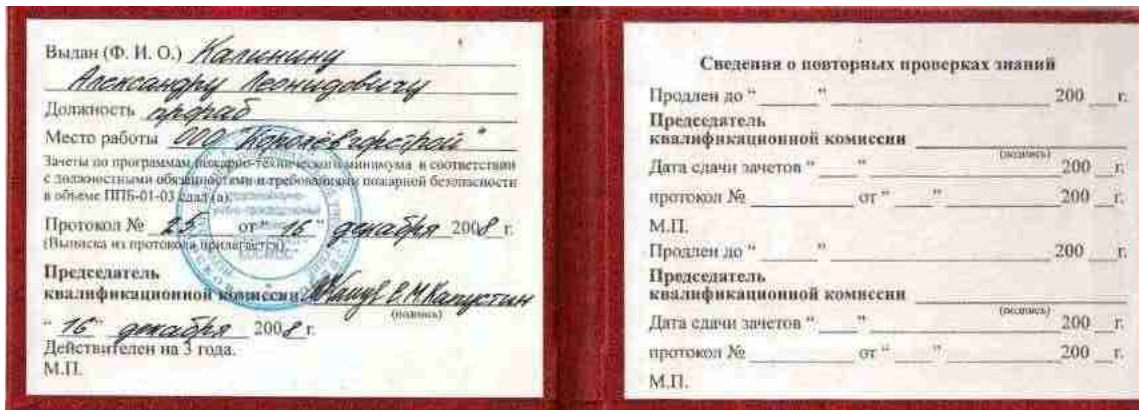 Выдан (Ф. И. О.) Калинину
Александру Леонидовичу
Должность прораб
Место работы ООО "Королёвгорстрой"
Зачеты по программам пожарно-технического минимума в соответствии
с должностными обязанностями и требованиями пожарной безопасности
в объеме ППБ-01-03 сдал (а).
Протокол № 25 от "16" декабря 2008 г.
(Выписка из протокола прилагается).
Председатель
квалификационной комиссии Е.М.Капустин
(подпись)
"16" декабря 2008 г.
Действителен на 3 года.
М.П.
Сведения о повторных проверках знаний
Продлен до "____" ____________ 200__г.
Председатель
квалификационной комиссии ____________
(подпись)
Дата сдачи зачетов "____" ____________ 200__г.
протокол № ________ от "____" ____________ 200__г.
М.П.
Продлен до "____" ____________ 200__г.
Председатель
квалификационной комиссии ____________
(подпись)
Дата сдачи зачетов "____" ____________ 200__г.
протокол № ________ от "____" ____________ 200__г.
М.П.